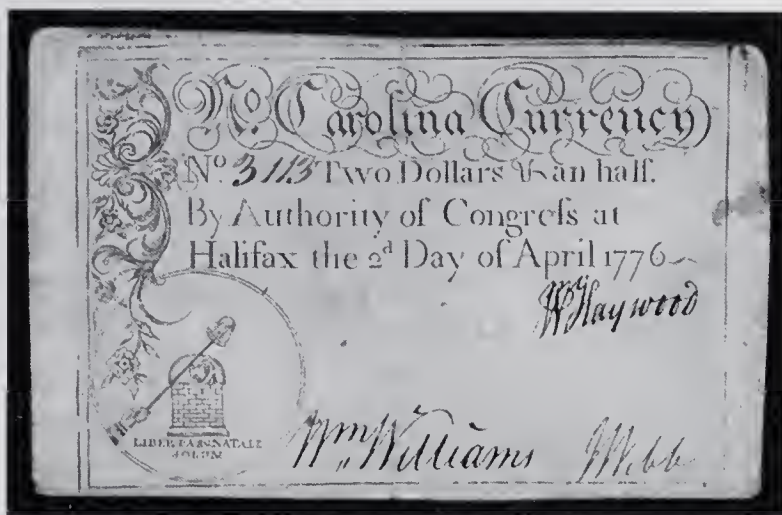 No. Carolina Currency
No. 3113 Two Dollars & an half.
By Authority of Congreſs at
Halifax the 2d Day of April 1776
W Haywood
LIBERTAS NATALE
SOLUM
Wm Williams
J Webb